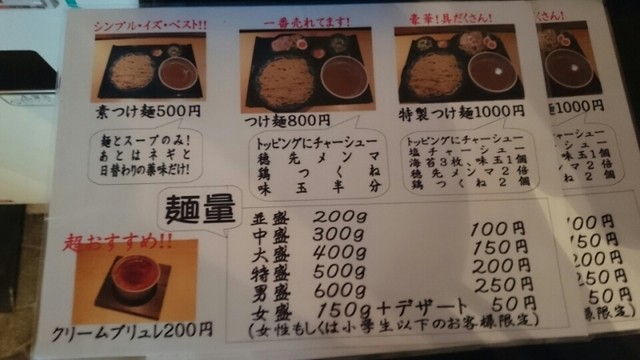 シンプル・イズ・ベスト!!
素つけ麺500円
麺とスープのみ!
あとはネギと
日替わりの薬味だけ!
一番売れてます!
つけ麺800円
トッピングにチャーシュー
穂先メンマ
鶏つくね
味玉半分
豪華!具だくさん!
特製つけ麺1000円
トッピングにチャーシュー
塩チャーシュー
海苔3枚、味玉1個
穂先メンマ2倍
鶏つくね2個
麺量
並盛 200g
中盛 300g 100円
大盛 400g 150円
特盛 500g 200円
男盛 600g 250円
女盛 150g+デザート 50円
(女性もしくは小学生以下のお客様限定)
超おすすめ!!
クリームブリュレ200円
くさん!
麺1000円
チャーシュー
シュー
味玉1個
マ2倍
ね2個
100円
150円
200円
250円
50円
客様限定)